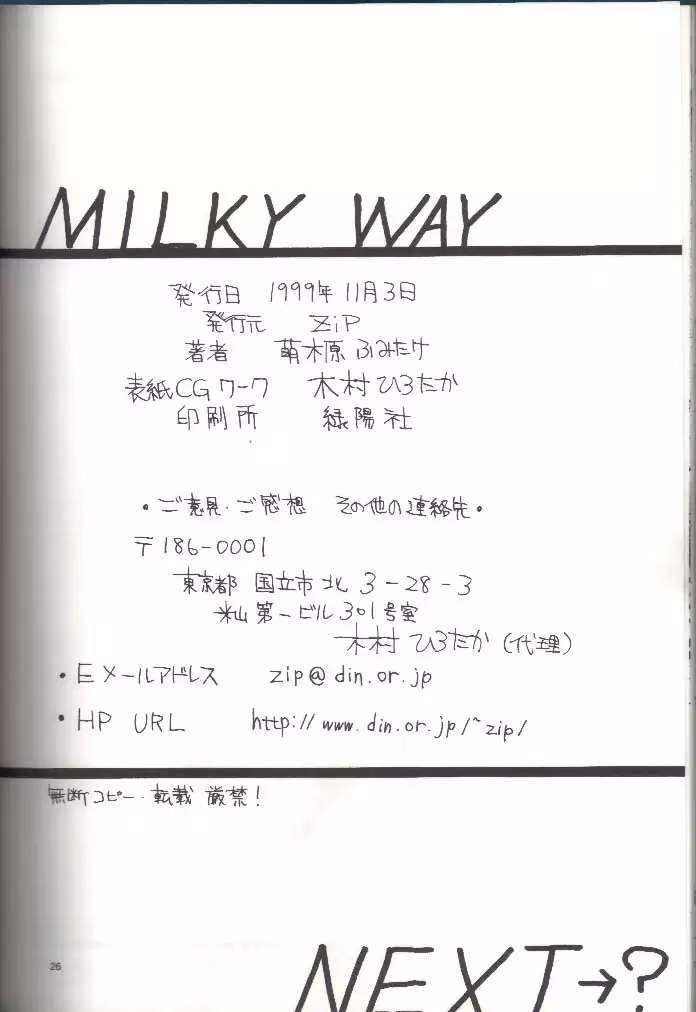 MILKY WAY
発行日 1999年11月3日
発行元 ZiP
著者 萌木原ふみたけ
表紙CGワーク 木村ひろたか
印刷所 緑陽社
・ご意見・ご感想 その他の連絡先・
〒186-0001
東京都 国立市北 3-28-3
米山第一ビル301号室
木村ひろたか(代理)
・Eメールアドレス zip@din.or.jp
・HP URL http://www.din.or.jp/~zip/
無断コピー・転載 厳禁!
26
NEXT→?